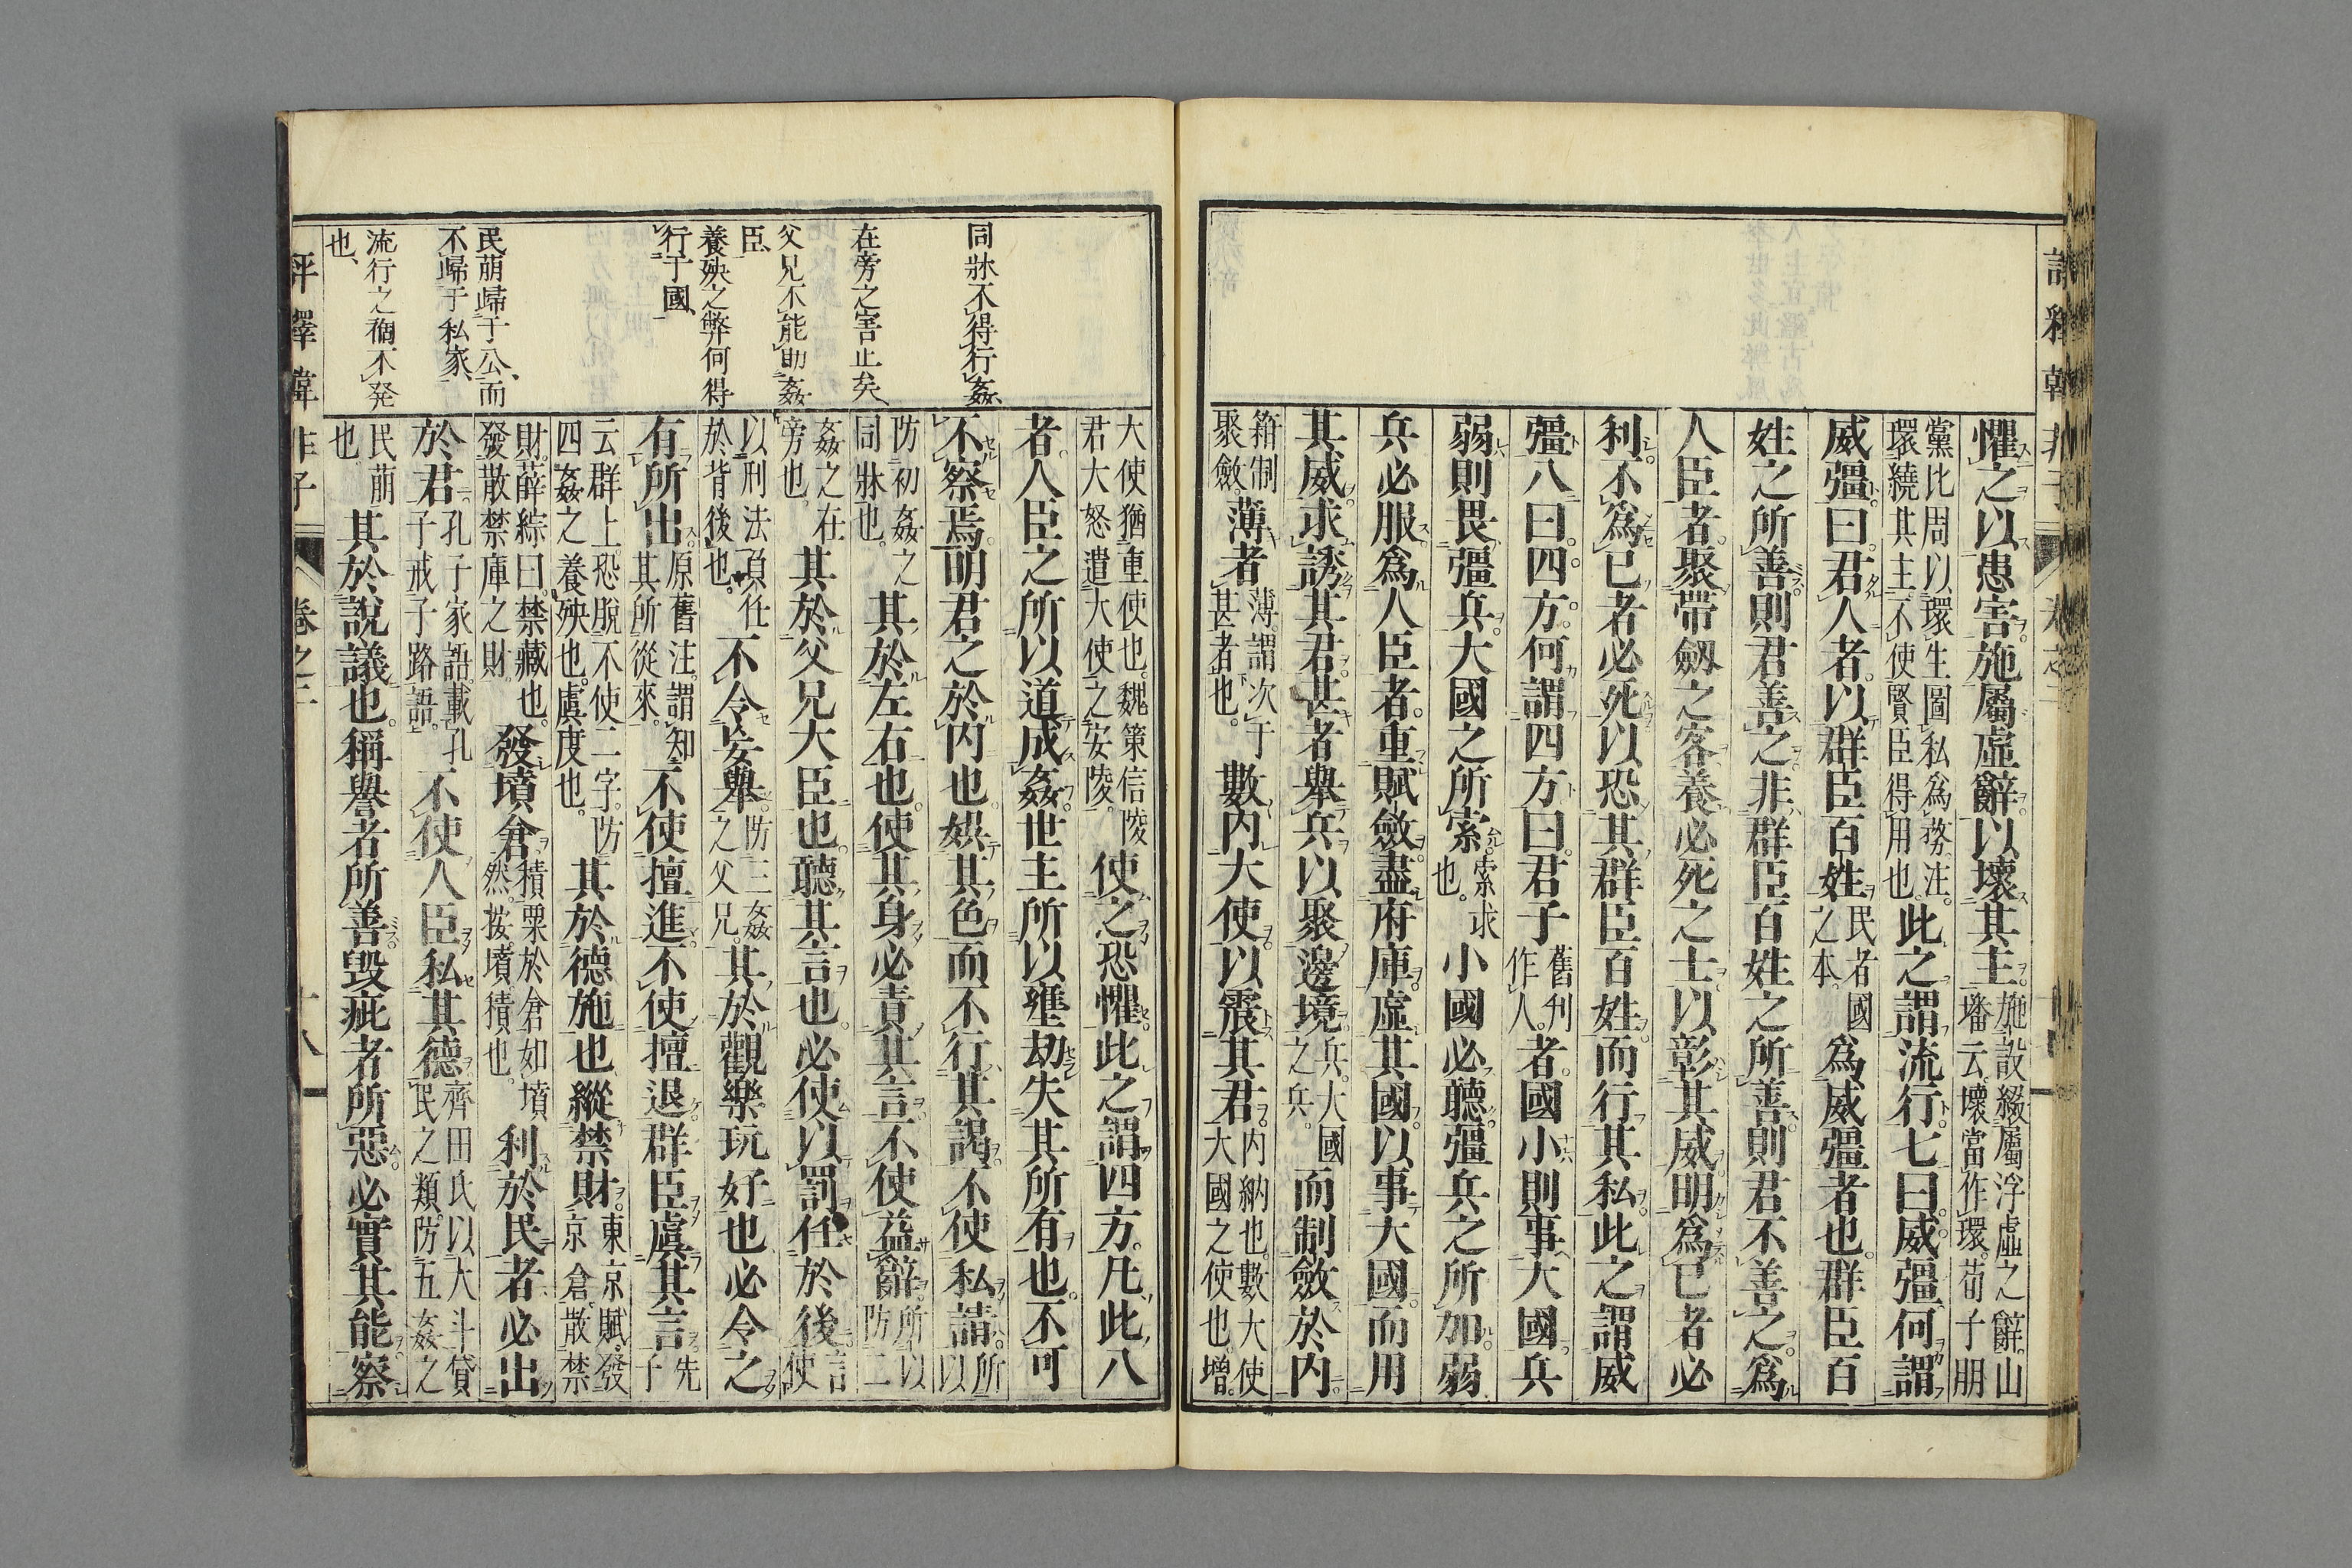 懼之以患害施屬虛辭以壞其主施設綴屬浮虛之辭山璠云壞當作環荀子朋
黨比周以環主圖私為務注環繞其主不使賢臣得用也此之謂流行七曰威彊何謂
威彊曰君人者以群臣百姓民者國之本為威彊者也群臣百
姓之所善則君善之非群臣百姓之所善則君不善之為
人臣者聚帶劔之客養必死之士以彰其威明為己者必
利不為己者必死以恐其群臣百姓而行其私此之謂威
彊八曰四方何謂四方曰君子舊刋作人者國小則事大國兵
弱則畏彊兵大國之所索索求也小國必聽彊兵之所加弱
兵必服為人臣者重賦斂盡府庫虛其國以事大國而用
其威求誘其君甚者舉兵以聚邊境兵大國之兵而制斂於内
箝制聚斂薄者薄謂次于甚者也數内大使以震其君内納也數大使大國之使也增
大使猶重使也魏策信陵君大怒遣大使之安陵使之恐懼此之謂四方凡此八
者人臣之所以道成姦世主所以壅劫失其所有也不可
不察焉明君之於内也娯其色而不行其謁不使私請所以
防初姦之同牀也其於左右也使其身必責其言不使益辭所以防二
姦之在旁也其於父兄大臣也聽其言也必使以罰任於後言使
以刑法責任於背後也不令妄舉防三姦之父兄其於觀樂玩好也必令之
有所出原舊注謂知其所從來不使擅進不使擅退群臣虞其言先子
云群上恐脫不使二字防四姦之養殃也虞度也其於德施也縱禁財東京賦發京倉散禁
財薛綜曰禁藏也發散禁庫之財發墳倉積粟於倉如墳然按墳積也利於民者必出
於君孔子家語載孔子戒子路語不使人臣私其德齊田氏以大斗貸民之類防五姦之
民萠也其於說議也稱譽者所善毀疵者所惡必實其能察
同牀不得行姦
在旁之害止矣
父兄不能助姦
臣
養殃之弊何得
行于國
民萠歸于公而
不歸于私家
流行之禍不発
也
卷之二